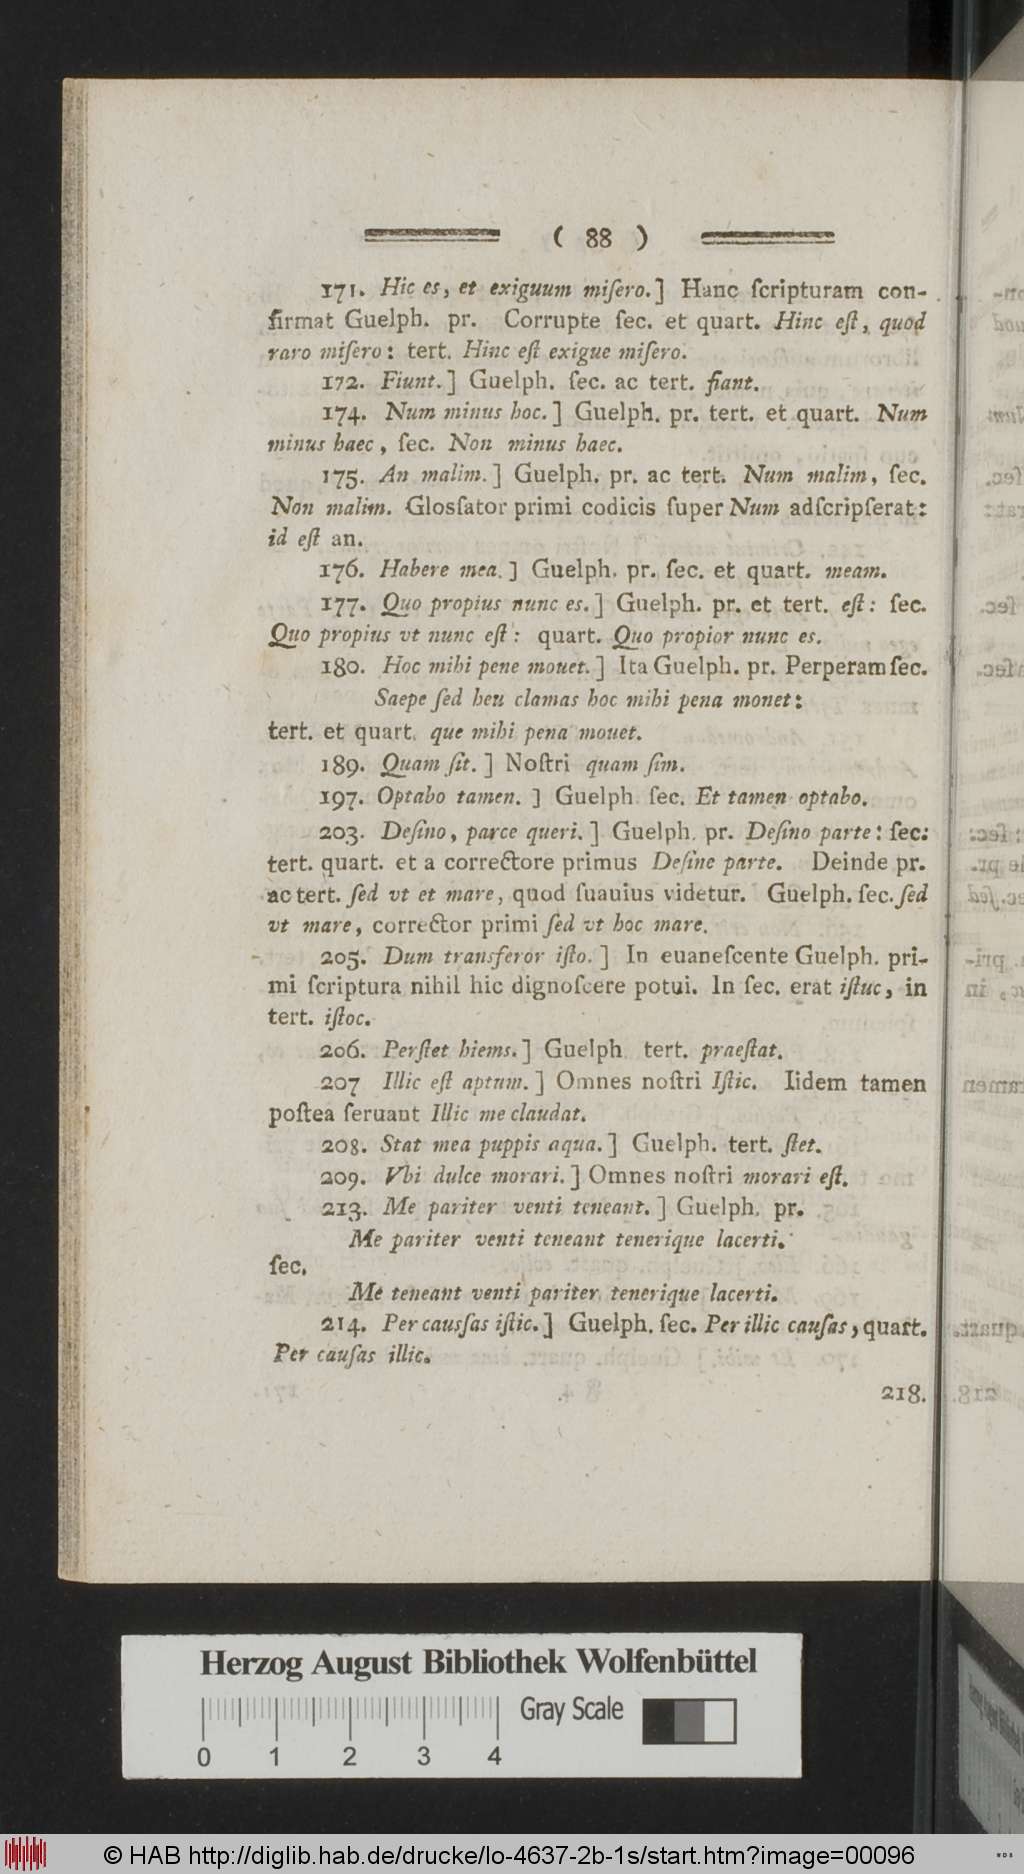 ( 88 )
171. Hic es, et exiguum miſero.] Hanc ſcripturam con-
firmat Guelph. pr. Corrupte ſec. et quart. Hinc eſt, quod
raro miſero: tert. Hinc eſt exigue miſero.
172. Fiunt.] Guelph. ſec. ac tert. fiant.
174. Num minus hoc.] Guelph. pr. tert. et quart. Num
minus haec, ſec. Non minus haec.
175. An malim.] Guelph. pr. ac tert. Num malim, ſec.
Non malim. Gloſſator primi codicis ſuper Num adſcripſerat:
id eſt an.
176. Habere mea.] Guelph. pr. ſec. et quart. meam.
177. Quo propius nunc es.] Guelph. pr. et tert. eſt: ſec.
Quo propius vt nunc eſt: quart. Quo propior nunc es.
180. Hoc mihi pene mouet.] Ita Guelph. pr. Perperam ſec.
Saepe ſed heu clamas hoc mihi pena monet:
tert. et quart. que mihi pena mouet.
189. Quam ſit.] Noſtri quam ſim.
197. Optabo tamen.] Guelph. ſec. Et tamen optabo.
203. Deſino, parce queri.] Guelph. pr. Deſino parte: ſec:
tert. quart. et a correctore primus Deſine parte. Deinde pr.
ac tert. ſed vt et mare, quod ſuauius videtur. Guelph. ſec. ſed
vt mare, corrector primi ſed vt hoc mare.
205. Dum transferor iſto.] In euaneſcente Guelph. pri-
mi ſcriptura nihil hic dignoſcere potui. In ſec. erat iſtuc, in
tert. iſtoc.
206. Perſtet hiems.] Guelph. tert. praeſtat.
207 Illic eſt aptum.] Omnes noſtri Iſtic. Iidem tamen
poſtea ſeruant Illic me claudat.
208. Stat mea puppis aqua.] Guelph. tert. ſtet.
209. Vbi dulce morari.] Omnes noſtri morari eſt.
213. Me pariter venti teneant.] Guelph. pr.
Me pariter venti teneant tenerique lacerti.
ſec.
Me teneant venti pariter tenerique lacerti.
214. Per cauſſas iſtic.] Guelph. ſec. Per illic cauſas, quart.
Per cauſas illic.
218.
Herzog August Bibliothek Wolfenbüttel
Gray Scale
0 1 2 3 4
© HAB http://diglib.hab.de/drucke/lo-4637-2b-1s/start.htm?image=00096